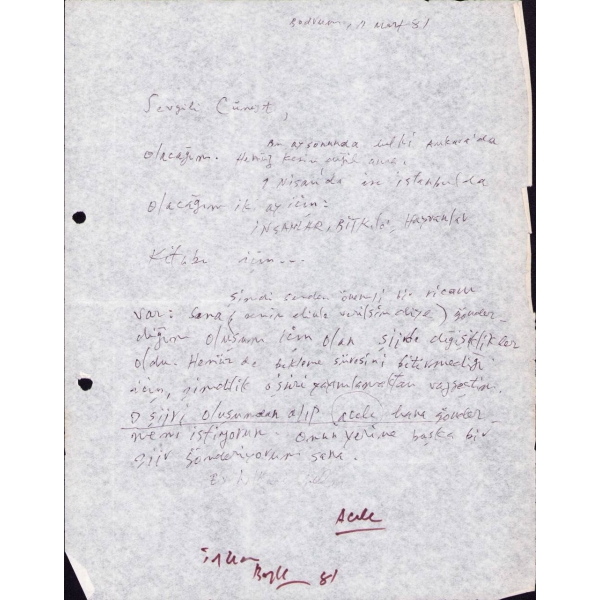 Bodrum, Mart 81
Sevgili Cüneyt,
Bu ay sonunda belki Ankara'da
olacağım. Henüz kesin değil ama.
1 Nisan'da ise İstanbul'da
olacağım iki ay için:
İNSANLAR, BİTKİLER, Hayvanlar
Kitabı için...
Şimdi senden önemli bir ricam
var: Sana ( verilsin diye) gönder-
diğim oluşum için olan şiirde değişiklikler
oldu. Henüz de bekleme süresini bitirmediği
için, şimdilik o şiiri yayımlamaktan vazgeçtim.
O şiiri oluşumdan alıp acele bana gönder-
meni istiyorum. Onun yerine başka bir
şiir gönderiyorum sana.
Acele
81